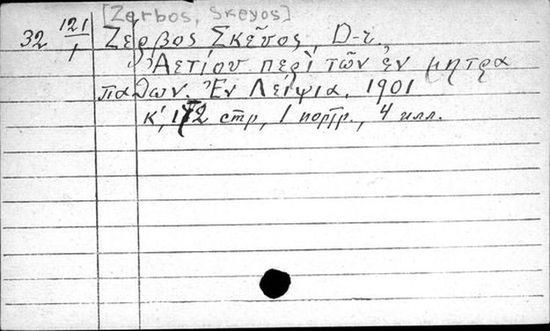 [Zerbos, Skeyos]
32 121/1 Ζερβος Σκεῦος, D-r.
Ἀετίου περὶ τῶν ἐν μητρα
παθων. Ἐν Λείψια. 1901
κ', 172 стр., 1 портр., 4 илл.